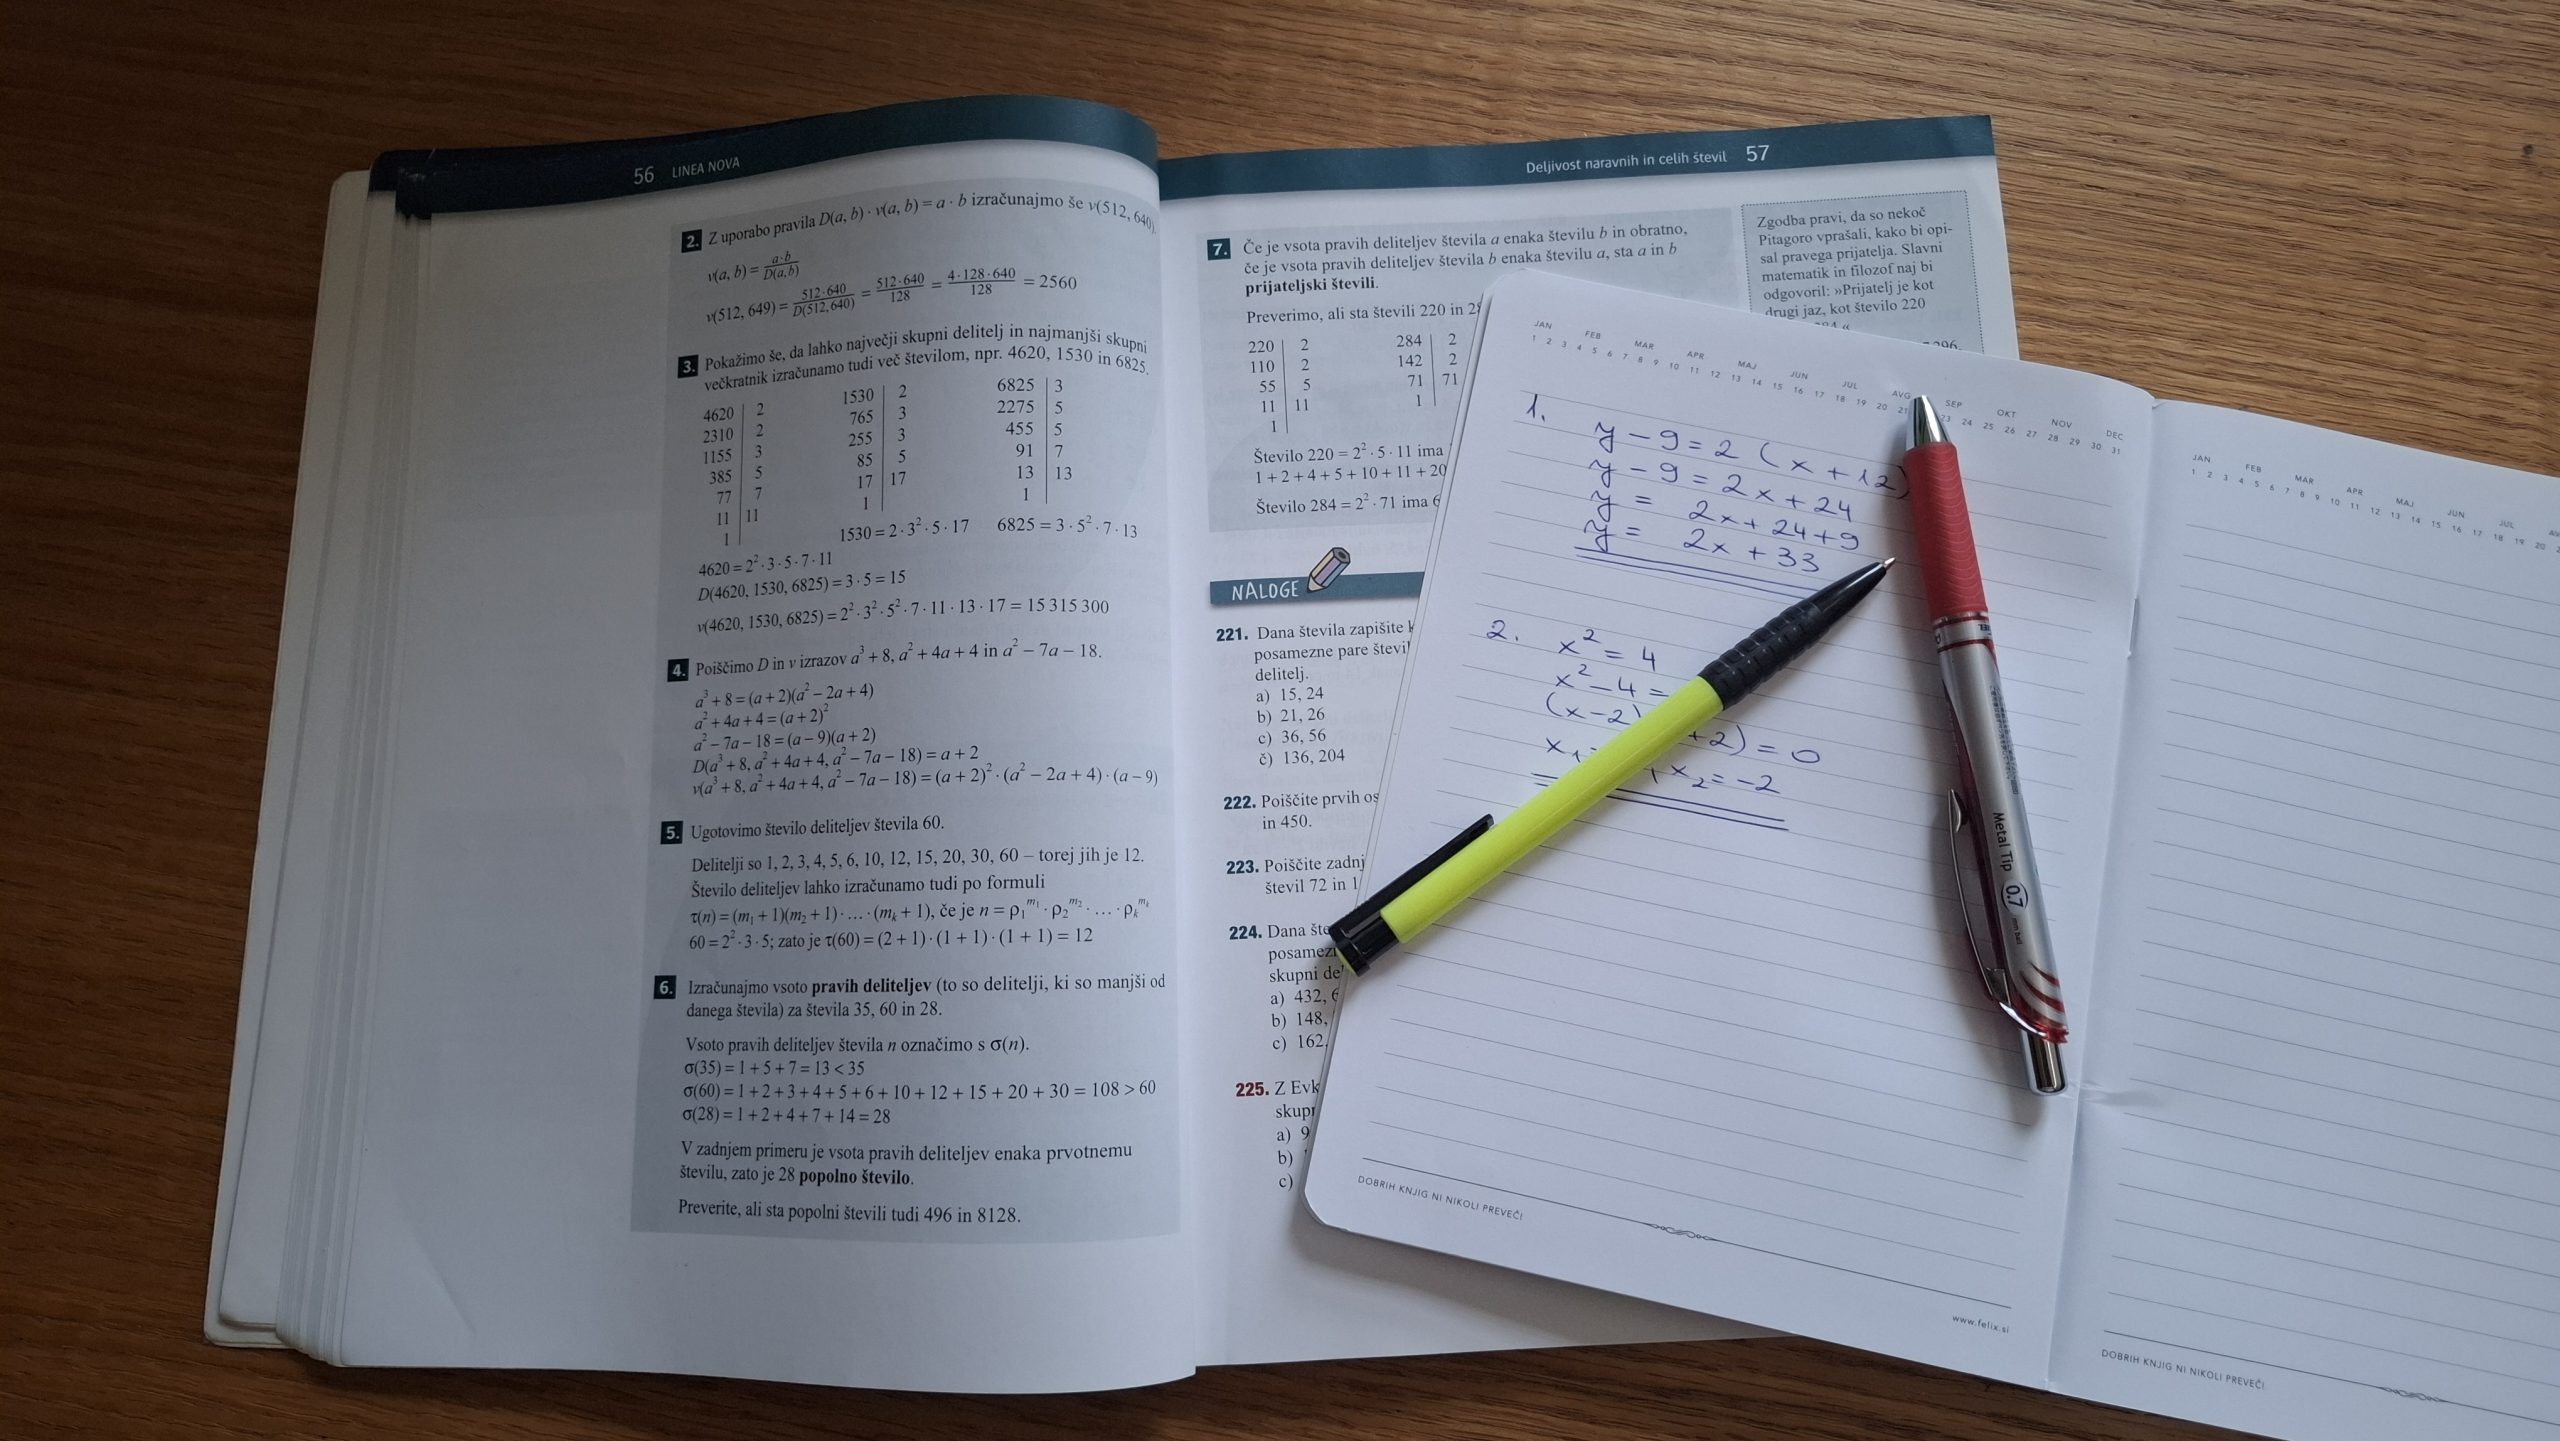 56 LINEA NOVA
2. Z uporabo pravila D(a, b) · v(a, b) = a · b izračunajmo še v(512, 640).
v(a, b) = a·b / D(a,b)
v(512, 649) = 512·640 / D(512,640) = 512·640 / 128 = 4·128·640 / 128 = 2560
3. Pokažimo še, da lahko največji skupni delitelj in najmanjši skupni
večkratnik izračunamo tudi več številom, npr. 4620, 1530 in 6825.
4620 | 2 1530 | 2 6825 | 3
2310 | 2 765 | 3 2275 | 5
1155 | 3 255 | 3 455 | 5
385 | 5 85 | 5 91 | 7
77 | 7 17 | 17 13 | 13
11 | 11 1 | 1 |
1 |
1530 = 2 · 3² · 5 · 17 6825 = 3 · 5² · 7 · 13
4620 = 2² · 3 · 5 · 7 · 11
D(4620, 1530, 6825) = 3 · 5 = 15
v(4620, 1530, 6825) = 2² · 3² · 5² · 7 · 11 · 13 · 17 = 15 315 300
4. Poiščimo D in v izrazov a³ + 8, a² + 4a + 4 in a² − 7a − 18.
a³ + 8 = (a + 2)(a² − 2a + 4)
a² + 4a + 4 = (a + 2)²
a² − 7a − 18 = (a − 9)(a + 2)
D(a³ + 8, a² + 4a + 4, a² − 7a − 18) = a + 2
v(a³ + 8, a² + 4a + 4, a² − 7a − 18) = (a + 2)² · (a² − 2a + 4) · (a − 9)
5. Ugotovimo število deliteljev števila 60.
Delitelji so 1, 2, 3, 4, 5, 6, 10, 12, 15, 20, 30, 60 – torej jih je 12.
Število deliteljev lahko izračunamo tudi po formuli
τ(n) = (m₁ + 1)(m₂ + 1) · … · (mₖ + 1), če je n = ρ₁^m₁ · ρ₂^m₂ · … · ρₖ^mₖ
60 = 2² · 3 · 5; zato je τ(60) = (2 + 1) · (1 + 1) · (1 + 1) = 12
6. Izračunajmo vsoto pravih deliteljev (to so delitelji, ki so manjši od
danega števila) za števila 35, 60 in 28.
Vsoto pravih deliteljev števila n označimo s σ(n).
σ(35) = 1 + 5 + 7 = 13 < 35
σ(60) = 1 + 2 + 3 + 4 + 5 + 6 + 10 + 12 + 15 + 20 + 30 = 108 > 60
σ(28) = 1 + 2 + 4 + 7 + 14 = 28
V zadnjem primeru je vsota pravih deliteljev enaka prvotnemu
številu, zato je 28 popolno število.
Preverite, ali sta popolni števili tudi 496 in 8128.
Deljivost naravnih in celih števil 57
7. Če je vsota pravih deliteljev števila a enaka številu b in obratno,
če je vsota pravih deliteljev števila b enaka številu a, sta a in b
prijateljski števili.
Preverimo, ali sta števili 220 in 28
220 | 2 284 | 2
110 | 2 142 | 2
55 | 5 71 | 71
11 | 11 1 |
1 |
Število 220 = 2² · 5 · 11 ima
1 + 2 + 4 + 5 + 10 + 11 + 20
Število 284 = 2² · 71 ima 6
Zgodba pravi, da so nekoč
Pitagoro vprašali, kako bi opi-
sal pravega prijatelja. Slavni
matematik in filozof naj bi
odgovoril: »Prijatelj je kot
drugi jaz, kot število 220
NALOGE
221. Dana števila zapišite
posamezne pare števil
delitelj.
a) 15, 24
b) 21, 26
c) 36, 56
č) 136, 204
222. Poiščite prvih os
in 450.
223. Poiščite zadnj
števil 72 in 1
224. Dana šte
posamez
skupni de
a) 432, 6
b) 148,
c) 162,
225. Z Evk
skup
a) 9
b)
c)
JAN FEB MAR APR MAJ JUN JUL AVG SEP OKT NOV DEC
1 2 3 4 5 6 7 8 9 10 11 12 13 14 15 16 17 18 19 20 21 23 24 25 26 27 28 29 30 31
1. y − 9 = 2 (x + 12)
y − 9 = 2x + 24
y = 2x + 24 + 9
y = 2x + 33
2. x² = 4
x² − 4 =
(x − 2) + 2) = 0
x₁ = x₂ = −2
DOBRIH KNJIG NI NIKOLI PREVEČ!
www.felix.si
Metal Tip 0.7
JAN FEB MAR APR MAJ JUN JUL
1 2 3 4 5 6 7 8 9 10 11 12 13 14 15 16 17 18 19 20
DOBRIH KNJIG NI NIKOLI PREVEČ!